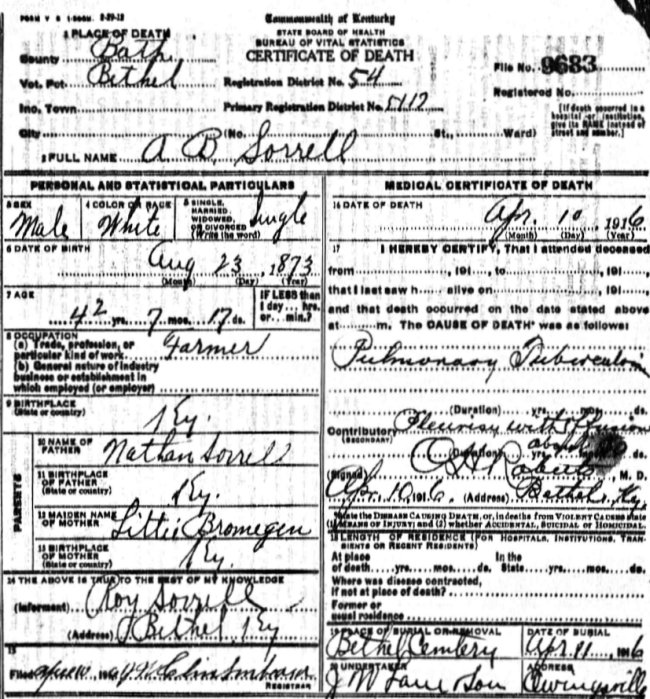 FORM V S 1-500M. 8-29-12
Commonwealth of Kentucky
STATE BOARD OF HEALTH
BUREAU OF VITAL STATISTICS
CERTIFICATE OF DEATH
1 PLACE OF DEATH
County Bath
Vot. Pct. Bethel
Inc. Town
City (No. St., Ward)
Registration District No. 54
Primary Registration District No.
File No. 9683
Registered No.
[If death occurred in a hospital or institution, give its NAME instead of street and number.]
2 FULL NAME A B Sorrell
PERSONAL AND STATISTICAL PARTICULARS
3 SEX Male
4 COLOR OR RACE White
5 SINGLE, MARRIED, WIDOWED, OR DIVORCED (Write the word) Single
6 DATE OF BIRTH Aug 23, 1873
(Month) (Day) (Year)
7 AGE 42 yrs. 7 mos. 17 ds.
IF LESS than 1 day... hrs. or... min.?
8 OCCUPATION
(a) Trade, profession, or particular kind of work Farmer
(b) General nature of industry business or establishment in which employed (or employer)
9 BIRTHPLACE (State or country) Ky.
PARENTS
10 NAME OF FATHER Nathan Sorrell
11 BIRTHPLACE OF FATHER (State or country) Ky.
12 MAIDEN NAME OF MOTHER Bromegen
13 BIRTHPLACE OF MOTHER (State or country) Ky.
14 THE ABOVE IS TRUE TO THE BEST OF MY KNOWLEDGE
(Informant) Roy Sorrell
(Address) Bethel, Ky
15
Filed
REGISTRAR
MEDICAL CERTIFICATE OF DEATH
16 DATE OF DEATH Apr. 10, 1916
(Month) (Day) (Year)
17 I HEREBY CERTIFY, That I attended deceased
from , 191 , to , 191 ,
that I last saw h alive on , 191 ,
and that death occurred on the date stated above
at m. The CAUSE OF DEATH* was as follows:
Pulmonary Tuberculosis
(Duration) yrs. mos. ds.
Contributory Pleurisy with Effusion
(SECONDARY)
(Duration) yrs. mos. ds.
(Signed) Roberts, M. D.
Apr. 10 1916. (Address) Bethel Ky.
*State the DISEASE CAUSING DEATH, or, in deaths from VIOLENT CAUSES state
(1) MEANS OF INJURY; and (2) whether ACCIDENTAL, SUICIDAL OR HOMICIDAL.
18 LENGTH OF RESIDENCE (FOR HOSPITALS, INSTITUTIONS, TRANSIENTS OR RECENT RESIDENTS)
At place of death yrs. mos. ds. In the State yrs. mos. ds.
Where was disease contracted, if not at place of death?
Former or usual residence
19 PLACE OF BURIAL OR REMOVAL
Bethel Cemtery
DATE OF BURIAL
Apr 11 1916
20 UNDERTAKER
J M Son
ADDRESS
Owingsville